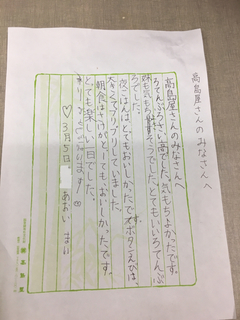 高島屋さんのみなさんへ
高島屋さんのみなさんへ
ろてんぶろさい高でした。気もちよかったです。
でした。とてもいいろてんぶ
ろでした。
夜ごはんは、とてもおいしかったです。ボタンえびは、
大きくてプリプリしていました。
朝食はさけがとーってもおいしかったです。
とても楽しい一日でした。
ありがとうございます
♡3月5日 あおい まい